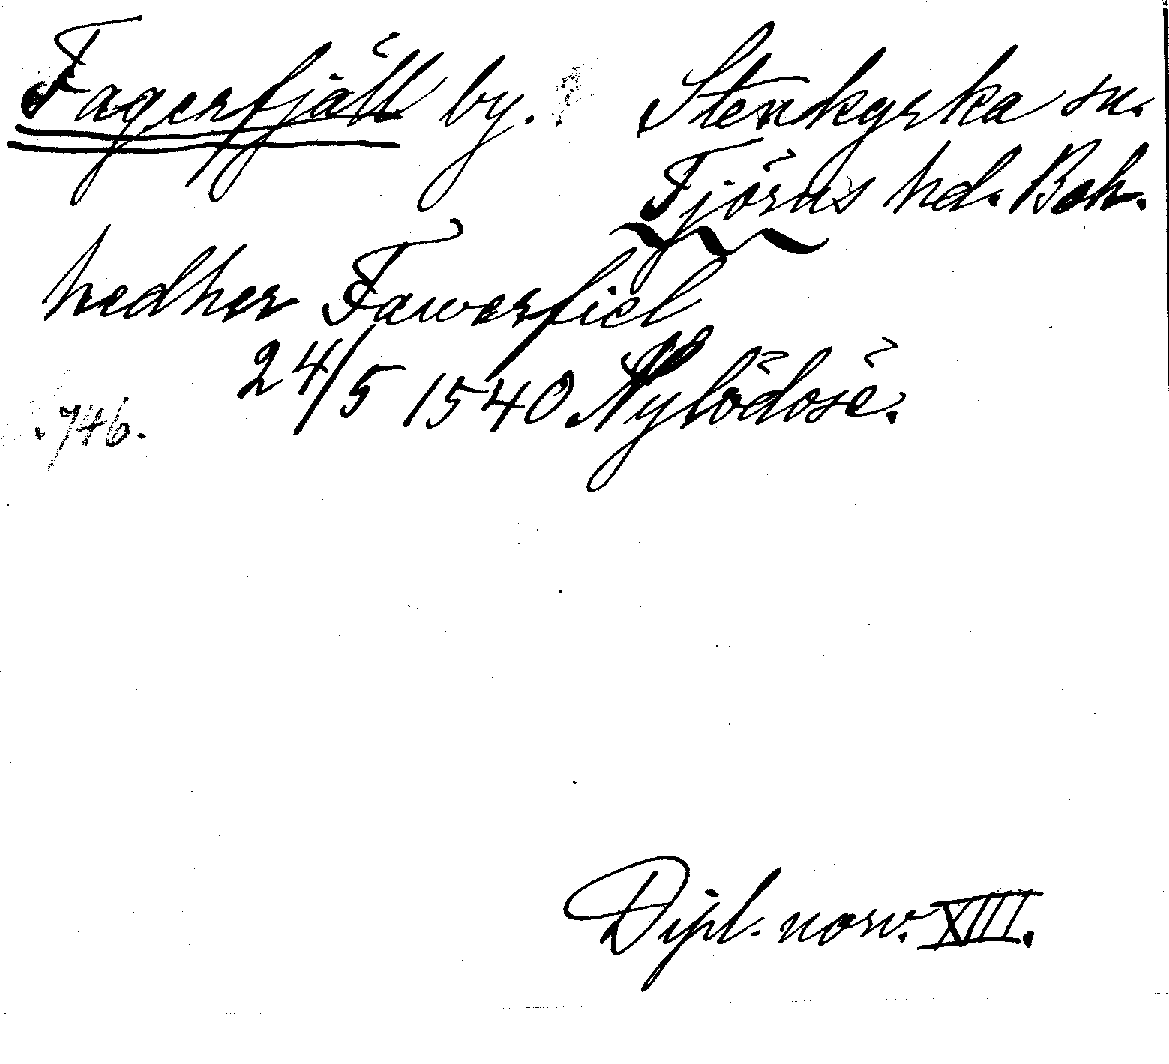 Fagerfjäll by. Stenkyrka sn.
Tjörns hd. Boh.
hedher Fawerfiel
24/5 1540 Nylödose.
746.
Dipl. norv. XIII.